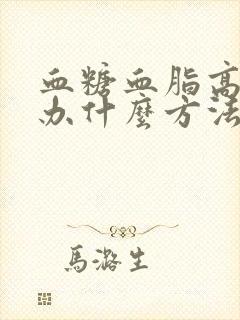 血糖血脂高
办什麼方法
馬潞生